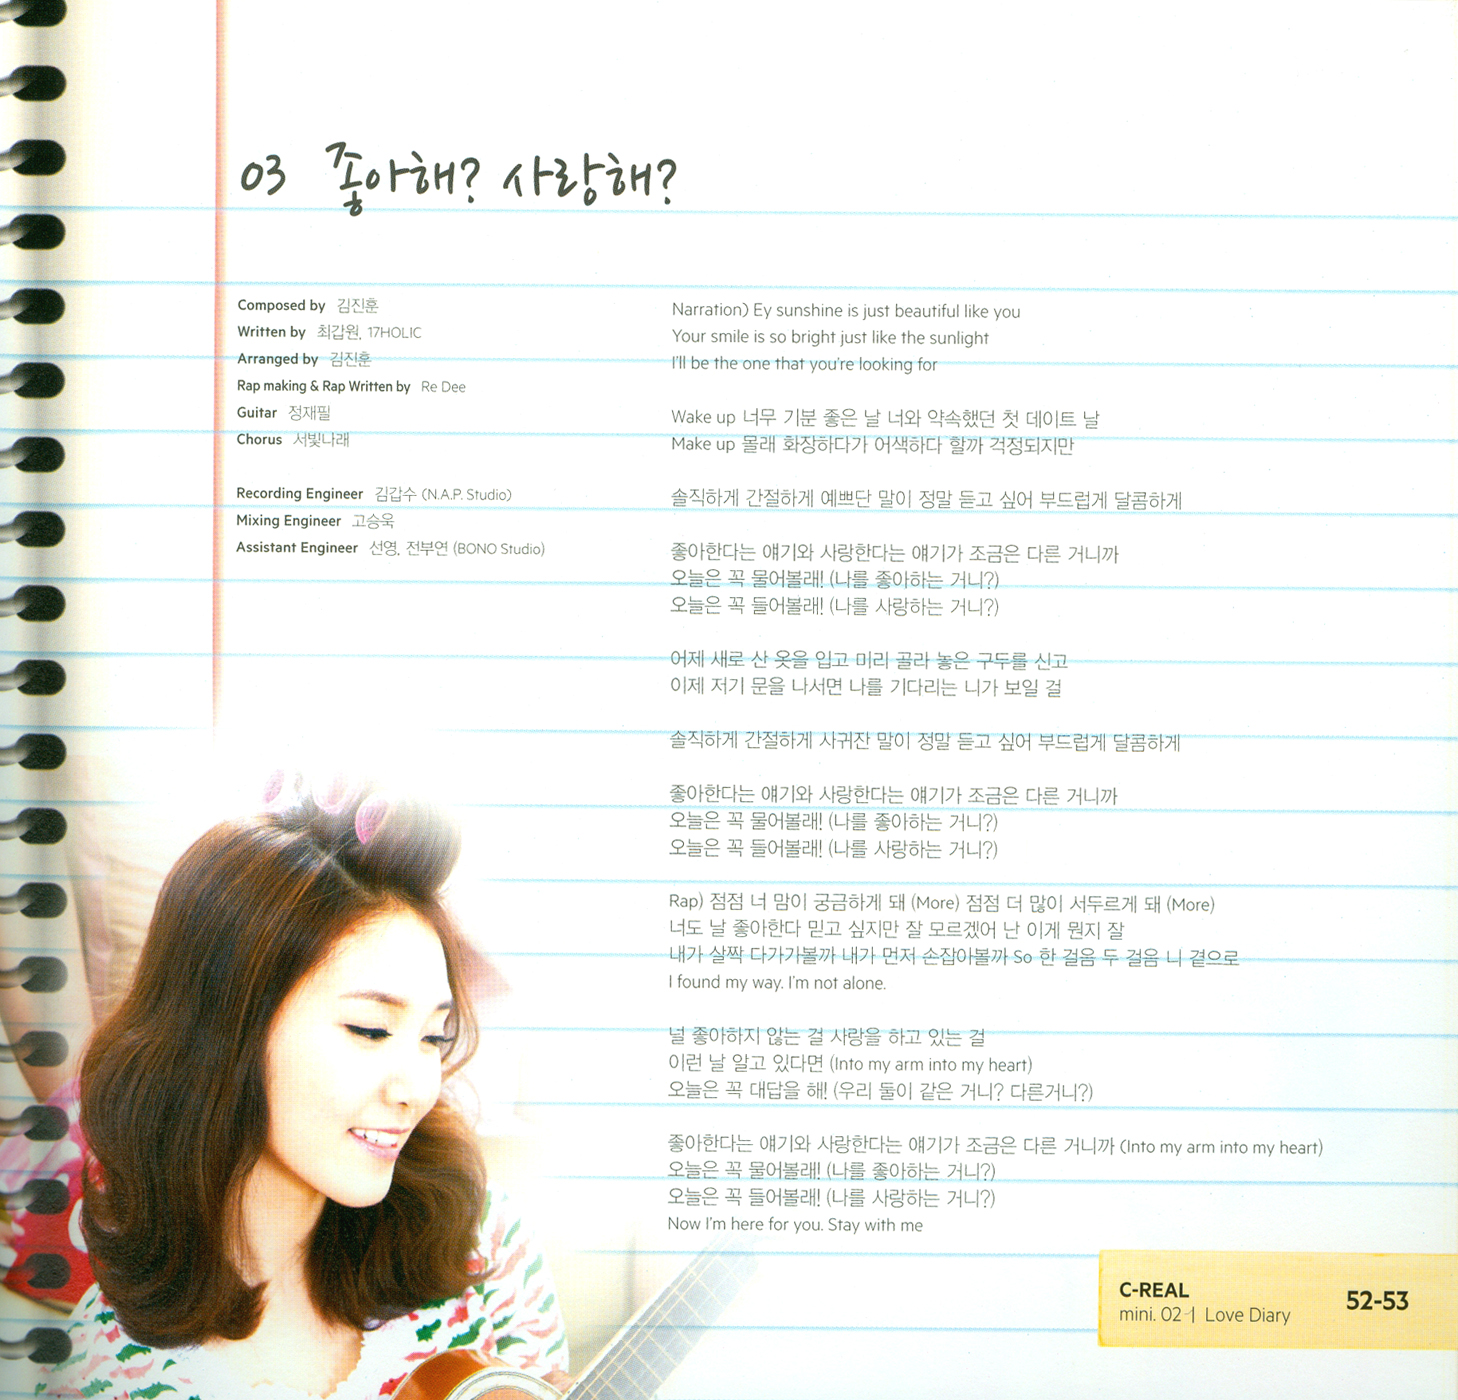 03 좋아해? 사랑해?
Composed by 김진훈
Written by 최갑원, 17HOLIC
Arranged by 김진훈
Rap making & Rap Written by Re Dee
Guitar 정재필
Chorus 서빛나래
Recording Engineer 김갑수 (N.A.P. Studio)
Mixing Engineer 고승욱
Assistant Engineer 선영, 전부연 (BONO Studio)
Narration) Ey sunshine is just beautiful like you
Your smile is so bright just like the sunlight
I'll be the one that you're looking for
Wake up 너무 기분 좋은 날 너와 약속했던 첫 데이트 날
Make up 몰래 화장하다가 어색하다 할까 걱정되지만
솔직하게 간절하게 예쁘단 말이 정말 듣고 싶어 부드럽게 달콤하게
좋아한다는 얘기와 사랑한다는 얘기가 조금은 다른 거니까
오늘은 꼭 물어볼래! (나를 좋아하는 거니?)
오늘은 꼭 들어볼래! (나를 사랑하는 거니?)
어제 새로 산 옷을 입고 미리 골라 놓은 구두를 신고
이제 저기 문을 나서면 나를 기다리는 니가 보일 걸
솔직하게 간절하게 사귀잔 말이 정말 듣고 싶어 부드럽게 달콤하게
좋아한다는 얘기와 사랑한다는 얘기가 조금은 다른 거니까
오늘은 꼭 물어볼래! (나를 좋아하는 거니?)
오늘은 꼭 들어볼래! (나를 사랑하는 거니?)
Rap) 점점 너 맘이 궁금하게 돼 (More) 점점 더 많이 서두르게 돼 (More)
너도 날 좋아한다 믿고 싶지만 잘 모르겠어 난 이게 뭔지 잘
내가 살짝 다가가볼까 내가 먼저 손잡아볼까 So 한 걸음 두 걸음 니 곁으로
I found my way. I'm not alone.
널 좋아하지 않는 걸 사랑을 하고 있는 걸
이런 날 알고 있다면 (Into my arm into my heart)
오늘은 꼭 대답을 해! (우리 둘이 같은 거니? 다른거니?)
좋아한다는 얘기와 사랑한다는 얘기가 조금은 다른 거니까 (Into my arm into my heart)
오늘은 꼭 물어볼래! (나를 좋아하는 거니?)
오늘은 꼭 들어볼래! (나를 사랑하는 거니?)
Now I'm here for you. Stay with me
C-REAL
mini. 02 | Love Diary
52-53